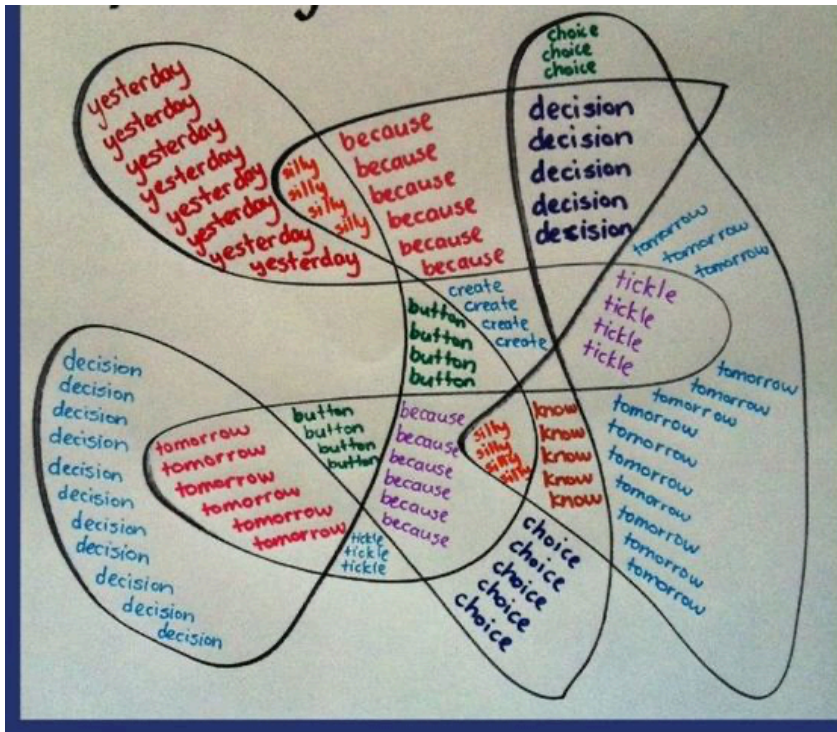 yesterday
yesterday
yesterday
yesterday
yesterday
yesterday
yesterday
yesterday
silly
silly
silly
silly
because
because
because
because
because
because
choice
choice
choice
decision
decision
decision
decision
decision
tomorrow
tomorrow
tomorrow
create
create
create
create
tickle
tickle
tickle
tickle
button
button
button
button
decision
decision
decision
decision
decision
decision
decision
decision
decision
decision
decision
tomorrow
tomorrow
tomorrow
tomorrow
tomorrow
tomorrow
button
button
button
button
because
because
because
because
because
because
silly
silly
silly
silly
know
know
know
know
know
tomorrow
tomorrow
tomorrow
tomorrow
tomorrow
tomorrow
tomorrow
tomorrow
tomorrow
tomorrow
tickle
tickle
tickle
choice
choice
choice
choice
choice